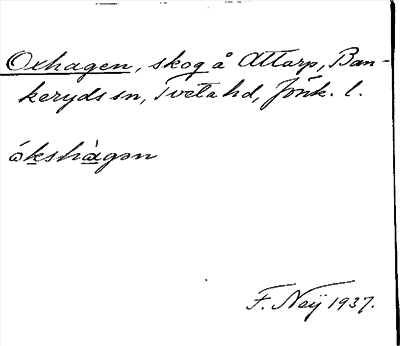 Oxhagen, skog å Attarp, Ban-
keryds sn, Tveta hd, Jönk. l.
ókshàgən
F. Neij 1937.